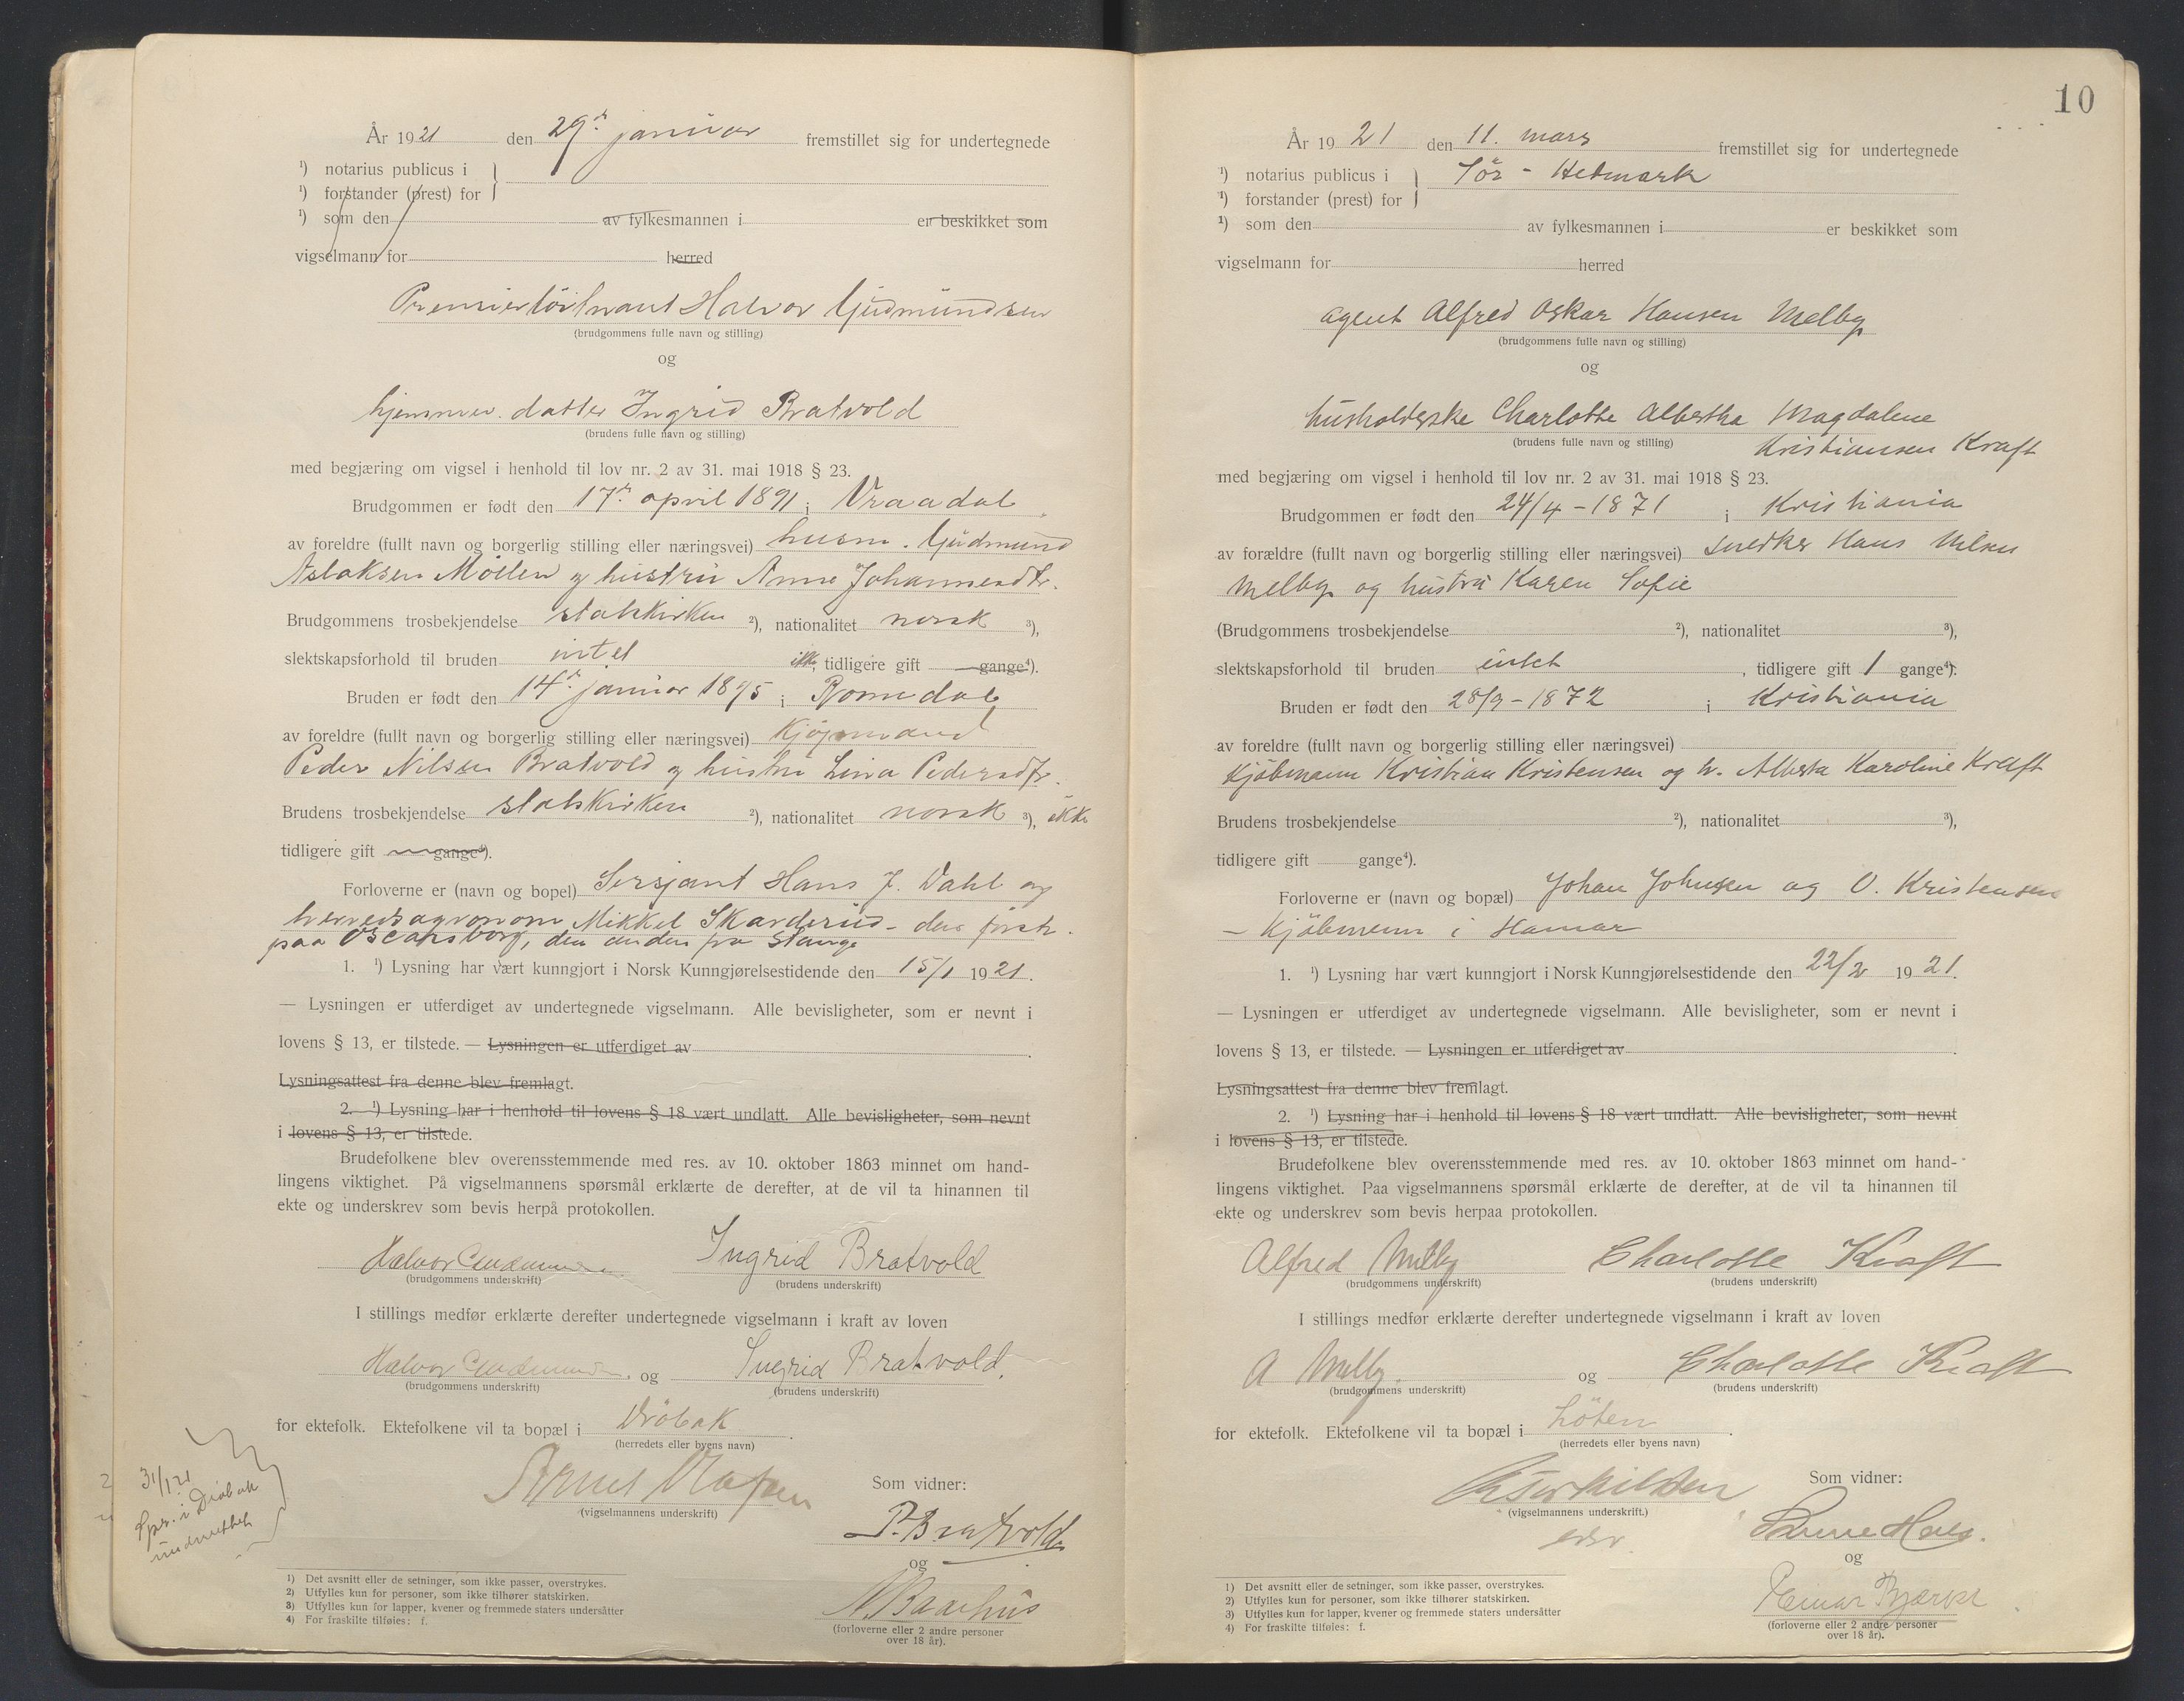 År 1921 den 29de januar fremstillet sig for undertegnede
1) notarius publicus i
1) forstander (prest) for
1) som den av fylkesmannen i er beskikket som
vigselmann for herred
Premierløitnant Halvor Gudmundsen
(brudgommens fulle navn og stilling)
og
hjemmev. datter Ingrid Bratvold
(brudens fulle navn og stilling)
med begjæring om vigsel i henhold til lov nr. 2 av 31. mai 1918 § 23.
Brudgommen er født den 17de april 1891 i Vraadal
av foreldre (fullt navn og borgerlig stilling eller næringsvei) husm. Gudmund
Aslaksen Moilen og hustru Anne Johannesdtr.
Brudgommens trosbekjendelse statskirken 2), nationalitet norsk 3),
slektskapsforhold til bruden intet ikke tidligere gift gange4).
Bruden er født den 14de januar 1895 i Romedal
av foreldre (fullt navn og borgerlig stilling eller næringsvei) Kjøpmand
Peder Nilsen Bratvold og hustru Lina Pedersdtr.
Brudens trosbekjendelse statskirken 2), nationalitet norsk 3), ikke
tidligere gift gange4).
Forloverne er (navn og bopel) Sersjant Hans J. Dahl og
herredsagronom Mikkel Skarderud - den første
paa Oscarsborg, den anden fra Stange
1. 1) Lysning har vært kunngjort i Norsk Kunngjørelsestidende den 15/1 1921.
— Lysningen er utferdiget av undertegnede vigselmann. Alle bevisligheter, som er nevnt i
lovens § 13, er tilstede. — Lysningen er utferdiget av
Lysningsattest fra denne blev fremlagt.
2. 1) Lysning har i henhold til lovens § 18 vært undlatt. Alle bevisligheter, som nevnt
i lovens § 13, er tilstede.
Brudefolkene blev overensstemmende med res. av 10. oktober 1863 minnet om hand-
lingens viktighet. På vigselmannens spørsmål erklærte de derefter, at de vil ta hinannen til
ekte og underskrev som bevis herpå protokollen.
Halvor Gudmundsen Ingrid Bratvold
(brudgommens underskrift) (brudens underskrift)
I stillings medfør erklærte derefter undertegnede vigselmann i kraft av loven
Halvor Gudmundsen og Ingrid Bratvold.
(brudgommens underskrift) (brudens underskrift)
for ektefolk. Ektefolkene vil ta bopæl i Drøbak
(herredets eller byens navn)
31/1 21
Spr. i Drøbak
underrettet
Som vidner:
(vigselmannens underskrift)
P. Bratvold
og
(forloverne eller 2 andre personer
over 18 år).
1) Det avsnitt eller de setninger, som ikke passer, overstrykes.
2) Utfylles kun for personer, som ikke tilhører statskirken.
3) Utfylles kun for lapper, kvener og fremmede staters undersåtter
4) For fraskilte tilføies: f.
10
År 1921 den 11. mars fremstillet sig for undertegnede
1) notarius publicus i Sør-Hedmark
1) forstander (prest) for
1) som den av fylkesmannen i er beskikket som
vigselmann for herred
agent Alfred Oskar Hansen Melby
(brudgommens fulle navn og stilling)
og
husholderske Charlotte Albertha Magdalene
Kristiansen Kraft
(brudens fulle navn og stilling)
med begjæring om vigsel i henhold til lov nr. 2 av 31. mai 1918 § 23.
Brudgommen er født den 24/4 - 1871 i Kristiania
av forældre (fullt navn og borgerlig stilling eller næringsvei) snedker Hans Nilsen
Melby og hustru Karen Sofie
(Brudgommens trosbekjendelse 2), nationalitet 3),
slektskapsforhold til bruden intet, tidligere gift 1 gange4).
Bruden er født den 28/9 - 1872 i Kristiania
av foreldre (fullt navn og borgerlig stilling eller næringsvei)
Kjøbmann Kristian Kristensen og h. Alberta Karoline Kraft
Brudens trosbekjendelse 2), nationalitet 3),
tidligere gift gange4).
Forloverne er (navn og bopæl) Johan Johnsen og O. Kristensen
- Kjøbmenn i Hamar
1. 1) Lysning har vært kunngjort i Norsk Kunngjørelsestidende den 22/2 1921.
— Lysningen er utferdiget av undertegnede vigselmann. Alle bevisligheter, som er nevnt i
lovens § 13, er tilstede. — Lysningen er utferdiget av
Lysningsattest fra denne blev fremlagt.
2. 1) Lysning har i henhold til lovens § 18 vært undlatt. Alle bevisligheter, som nevnt
i lovens § 13, er tilstede.
Brudefolkene blev overensstemmende med res. av 10. oktober 1863 minnet om hand-
lingens viktighet. Paa vigselmannens spørsmål erklærte de derefter, at de vil ta hinannen til
ekte og underskrev som bevis herpaa protokollen.
Alfred Melby Charlotte Kraft
(brudgommens underskrift) (brudens underskrift)
I stillings medfør erklærte derefter undertegnede vigselmann i kraft av loven
A Melby. og Charlotte Kraft
(brudgommens underskrift) (brudens underskrift)
for ektefolk. Ektefolkene vil ta bopæl i Løten
(herredets eller byens navn)
Som vidner:
(vigselmannens underskrift.)
og
Einar Bjerke
(forloverne eller 2 andre personer
over 18 år).
1) Det avsnitt eller de setninger, som ikke passer, overstrykes.
2) Utfylles kun for personer, som ikke tilhører statskirken.
3) Utfylles kun for lapper, kvener og fremmede staters undersåtter
4) For fraskilte tilføies: f.